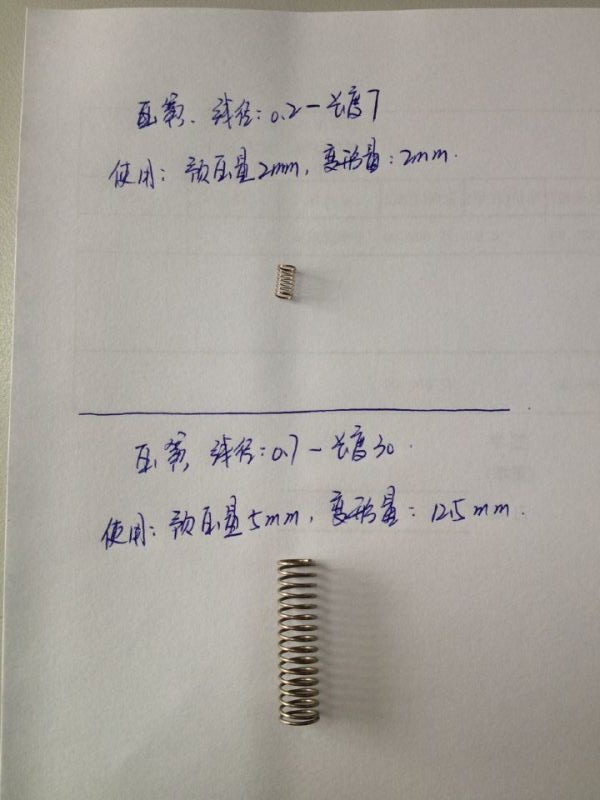 压簧、线径:0.2-长度7
使用:预压量2mm,变形量:2mm.
压簧,线径:0.7-长度30.
使用:预压量5mm,变形量:12.5mm.